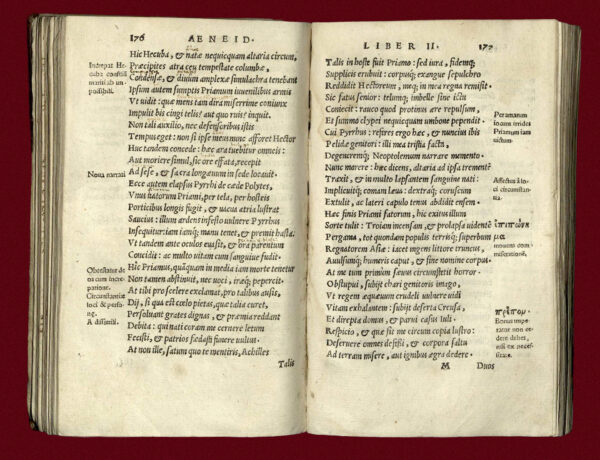 176 AENEID.
Hic Hecuba, & natæ nequicquam altaria circum,
Præcipites atra ceu tempestate columbæ,
Condensæ, & diuûm amplexæ simulachra tenebant
Ipsum autem sumptis Priamum iuuenilibus armis
Vt uidit: quæ mens tam dira miserrime coniunx
Impulit his cingi telis? aut quo ruis? inquit.
Non tali auxilio, nec defensoribus istis
Tempus eget: non si ipse meus nunc afforet Hector
Huc tandem concede: hæc ara tuebitur omneis:
Aut moriere simul, sic ore effata, recepit
Ad sese, & sacra longæuum in sede locauit.
Ecce autem elapsus Pyrrhi de cæde Polytes,
Vnus natorum Priami, per tela, per hosteis
Porticibus longis fugit, & uacua atria lustrat
Saucius: illum ardens infesto uulnere Pyrrhus
Insequitur: iam iamq; manu tenet, & premit hasta.
Vt tandem ante oculos euasit, & ora parentum
Concidit: ac multo vitam cum sanguine fudit.
Hic Priamus, quãquam in media iam morte tenetur
Non tamen abstinuit, nec uoci, iræq; pepercit.
At tibi pro scelere exclamat, pro talibus ausis,
Dij, si qua est cœlo pietas, quæ talia curet,
Persoluant grates dignas, & præmia reddant
Debita: qui nati coram me cernere letum
Fecisti, & patrios fœdasti funere uultus.
At non ille, satum quo te mentiris, Achilles
Talis
Increpat He
cuba consili
mariti ab im
possibili.
Noua narrati
Obtestatur de
os cum incre
patione.
Circunstantiæ
loci & perso
næ.
A dissimili.
LIBER II. 177
Talis in hoste fuit Priamo: sed iura, fidemq;
Supplicis erubuit: corpusq; exangue sepulchro
Reddidit Hectoreum, meq; in mea regna remisit.
Sic fatus senior: telumq; imbelle sine ictu
Coniecit: rauco quod protinus ære repulsum,
Et summo clypei nequicquam umbone pependit.
Cui Pyrrhus: referes ergo hæc, & nuncius ibis
Pelidæ genitori: illi mea tristia facta,
Degeneremq; Neoptolemum narrare memento
Nunc morere: hæc dicens, altaria ad ipsa trementẽ
Traxit, & in multo lapsantem sanguine nati:
Implicuitq; comam læua: dextraq; coruscum
Extulit, ac lateri capulo tenus abdidit ensem.
Hæc finis Priami fatorum, hic exitus illum
Sorte tulit: Troiam incensam, & prolapsa uidentẽ
Pergama, tot quondam populis terrisq; superbum
Regnatorem Asiæ: iacet ingens littore truncus,
Auulsumq; humeris caput, & sine nomine corpus.
At me tum primùm sæuus circumstetit horror.
Obstupui, subijt chari genitoris imago,
Vt regem æquæuum crudeli uulnere uidi
Vitam exhalantem: subijt deserta Creusa,
Et direpta domus, & parui casus Iuli.
Respicio, & quæ sit me circum copia lustro:
Deseruere omnes defessi, & corpora saltu
Ad terram misere, aut ignibus ægra dedere.
M Duos
Peramarum
iocum irrides
Priamum iam
uictum.
Affectus à lo
ci circunstan
tia.
mouens com
miserationē,
Ennus impe
ratur non ex
cedere debet,
nisi ex neces
sitate.